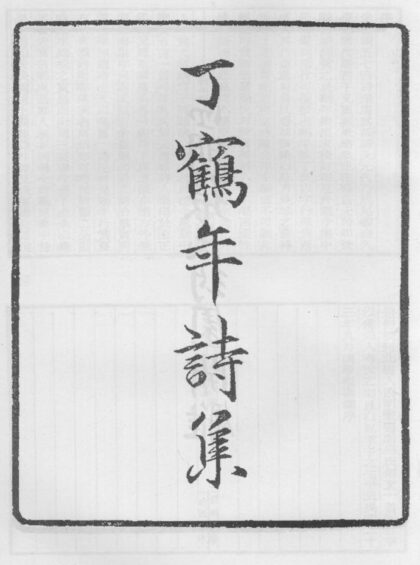 丁鶴年詩集